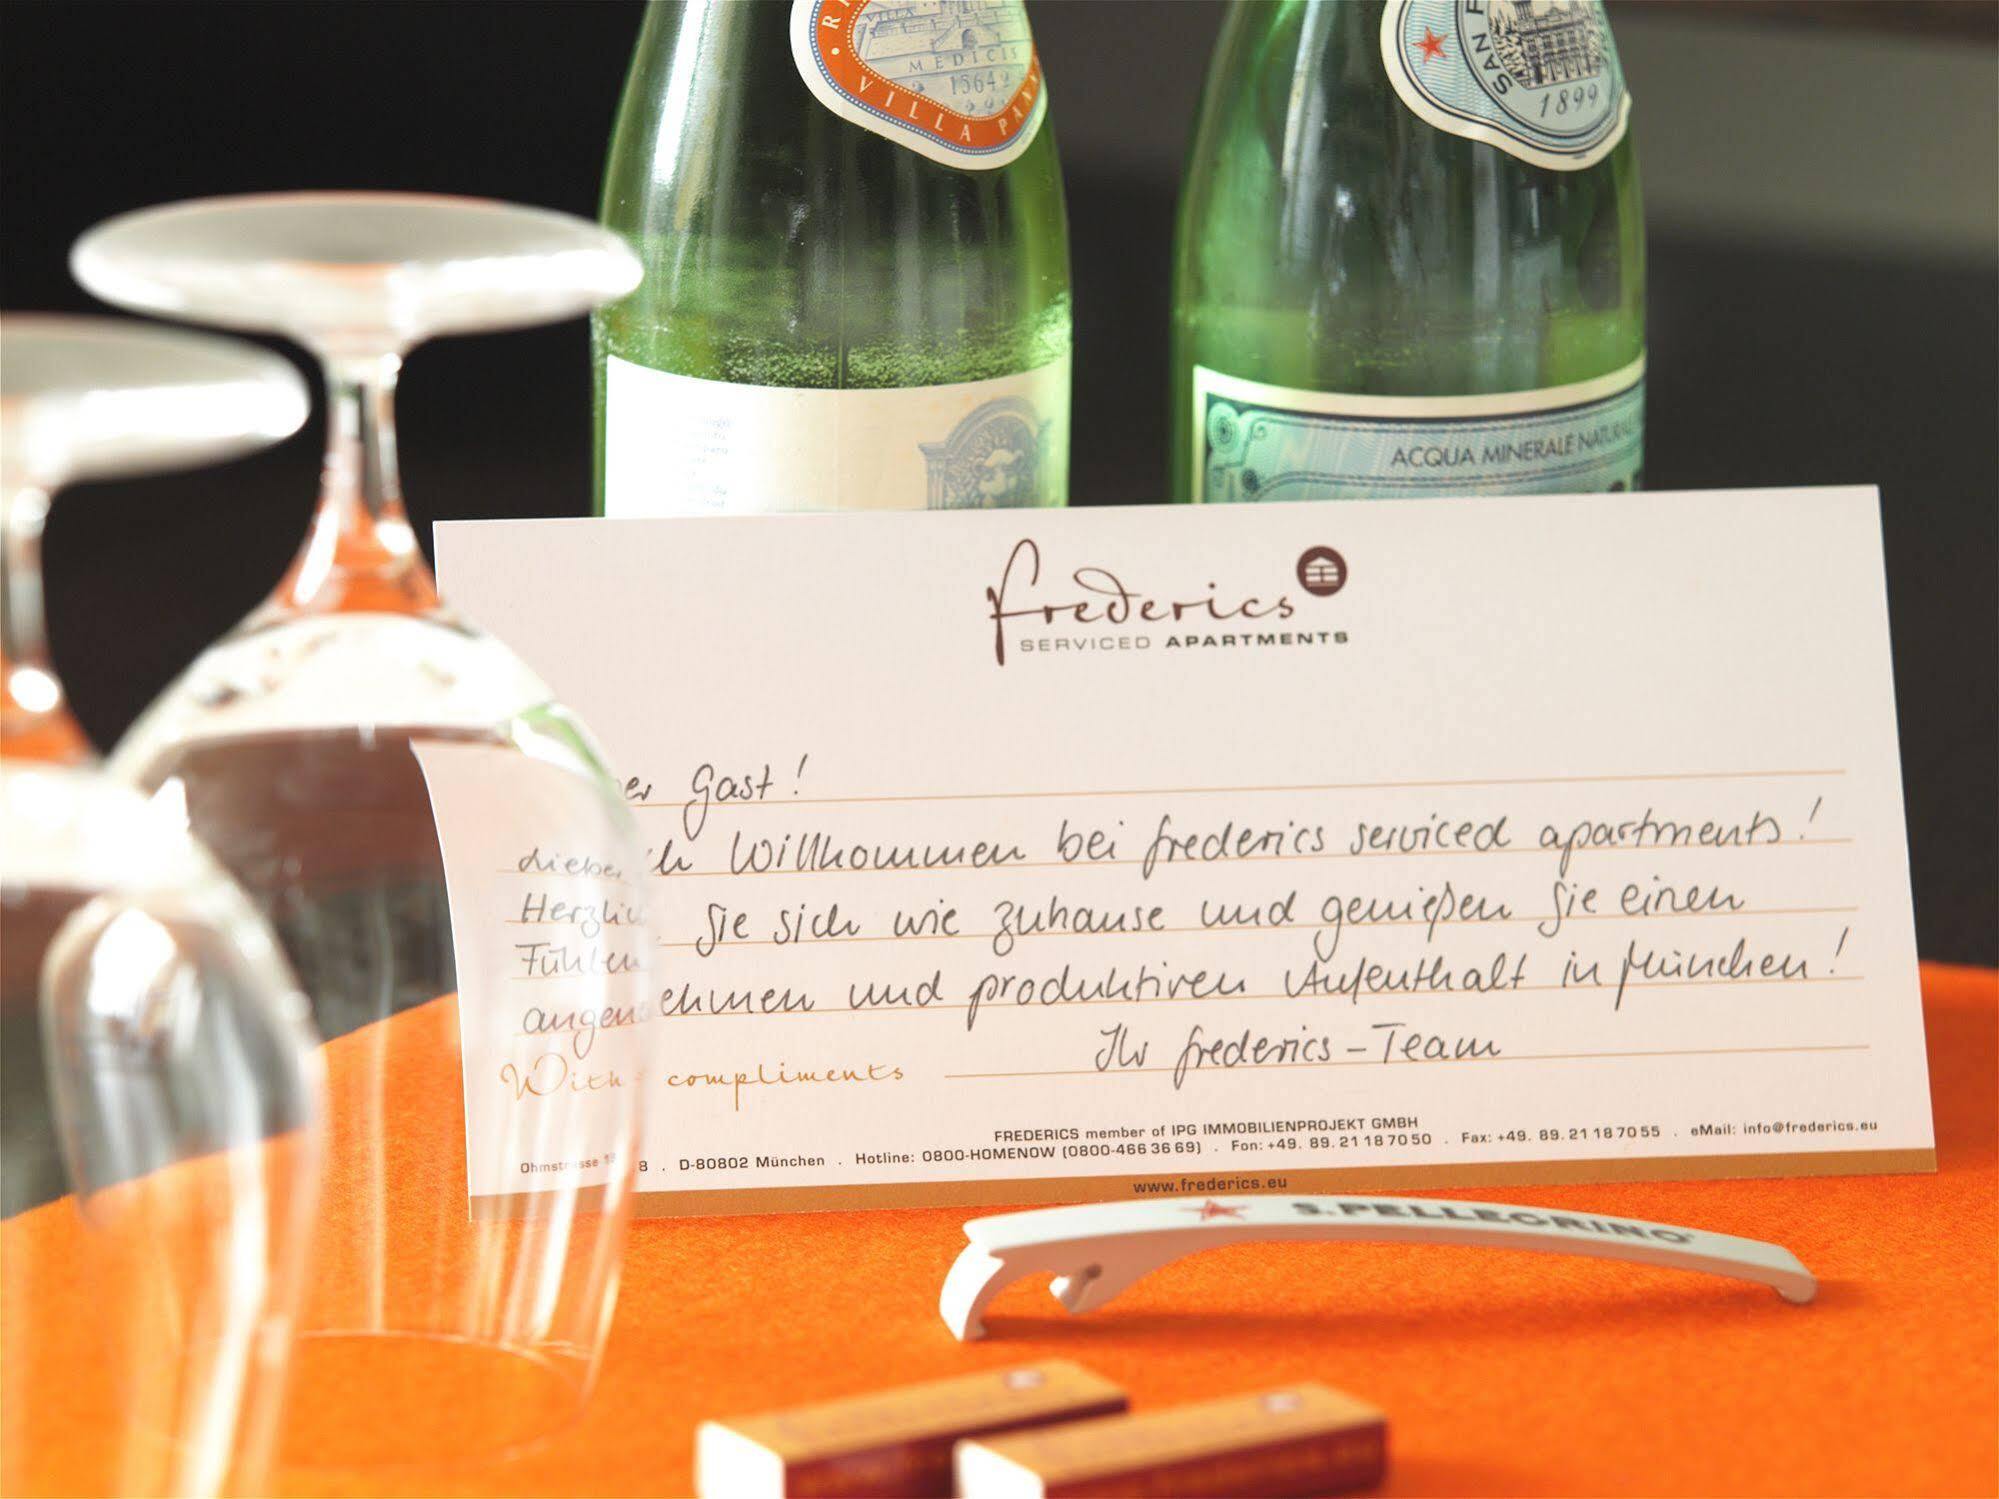 MEDICIS
1564
VILLA
SAN
1899
ACQUA MINERALE NATURAL
frederics
SERVICED APARTMENTS
Lieber Gast!
Herzlich Willkommen bei frederics serviced apartments!
Fühlen Sie sich wie zuhause und genießen Sie einen
angenehmen und produktiven Aufenthalt in München!
Ihr frederics-Team
With compliments
FREDERICS member of IPG IMMOBILIENPROJEKT GMBH
Ohmstrasse 8 . D-80802 München . Hotline: 0800-HOMENOW (0800-466 36 69) . Fon: +49. 89. 21 18 70 50 . Fax: +49. 89. 21 18 70 55 . eMail: info@frederics.eu
www.frederics.eu
S.PELLEGRINO